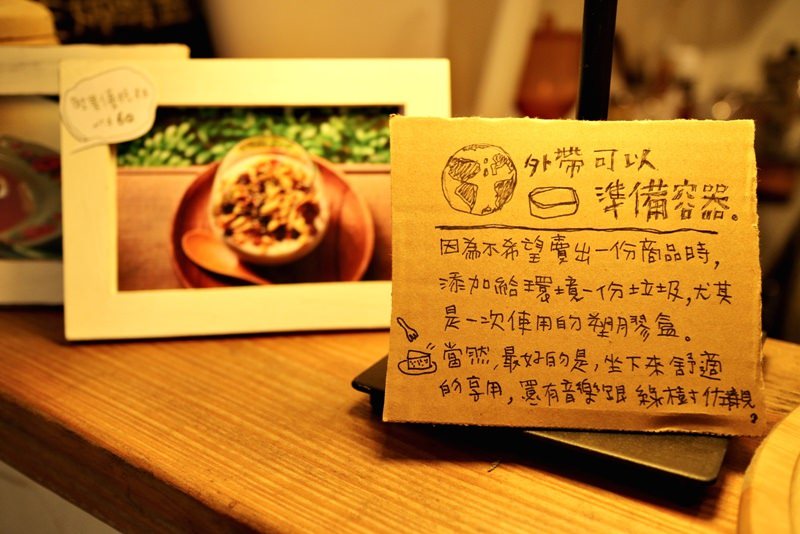 外帶可以
準備容器。
因為不希望賣出一份商品時,
添加給環境一份垃圾,尤其
是一次使用的塑膠盒。
當然,最好的是,坐下來舒適
的享用,還有音樂跟綠樹作襯。
60